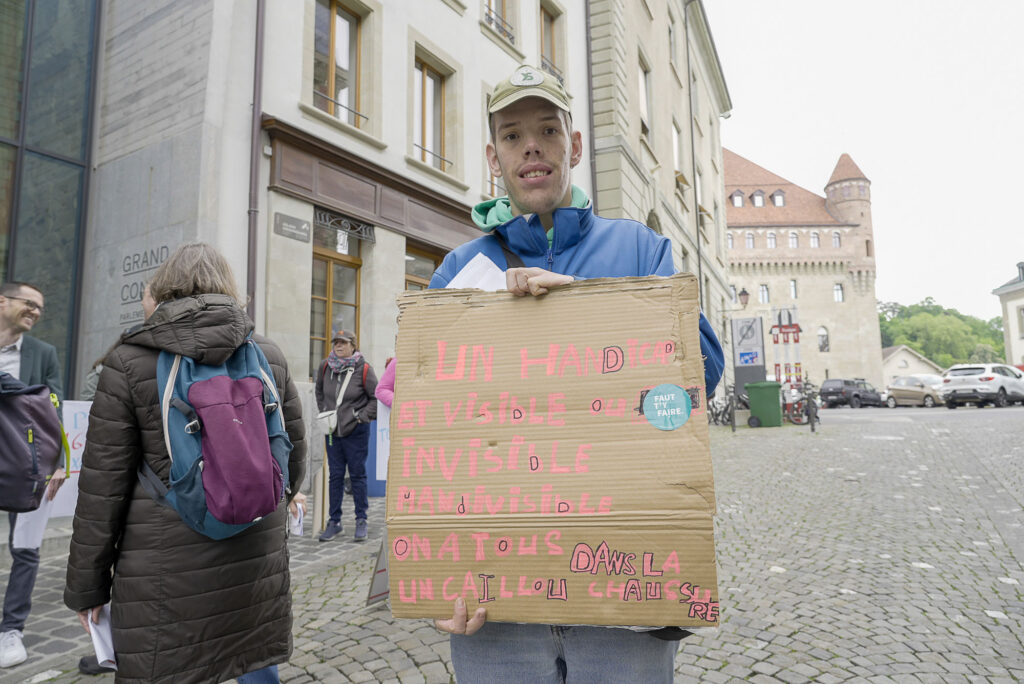 GRAND
CON
PARLEME
UN HANDICAP
VISIBLE OU
FAUT
T'Y
FAIRE
INVISIBLE
ON A TOUS DANS LA
UN CAILLOU CHAUSSURE